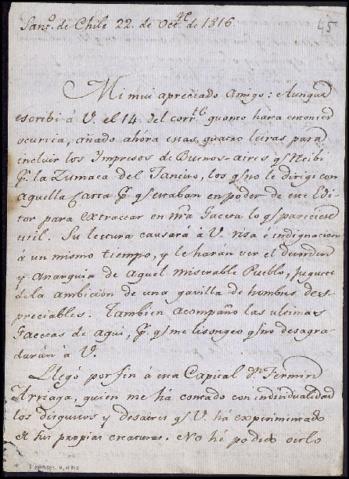 45
San.º de Chile 22. de Oct.re de 1816
Mi mui apreciado amigo: Aunque
escribí á V. el 14 del corr.te quanto hasta entonces
ocurria, añado ahora estas quatro letras para
incluir los Impresos de Buenos-aires q.e recibi
p.r la Zumaca del Janeiro, los q.e no le dirigi con
aquella Carta p.r q.e estaban en poder de este Edi
tor para extractar en n͞ra Gaceta lo q.e pareciese
util. Su lectura causará à V. risa é indignacion
à un mismo tiempo, y le harán ver el desorden
y Anarquia de aquel miserable Pueblo, juguete
de la ambicion de una gavilla de hombres des-
preciables. Tambien acompaño las ultimas
Gacetas de aqui, p.r q.e me lisongeo q.e no desagra
darán à V.
Llegó por fin á esta Capital d.n Fermin
Arriaga, quien me há contado con individualidad
los disgustos y desaires q.e V. há experimentado
de sus propias creaturas. No hé podido oirlo